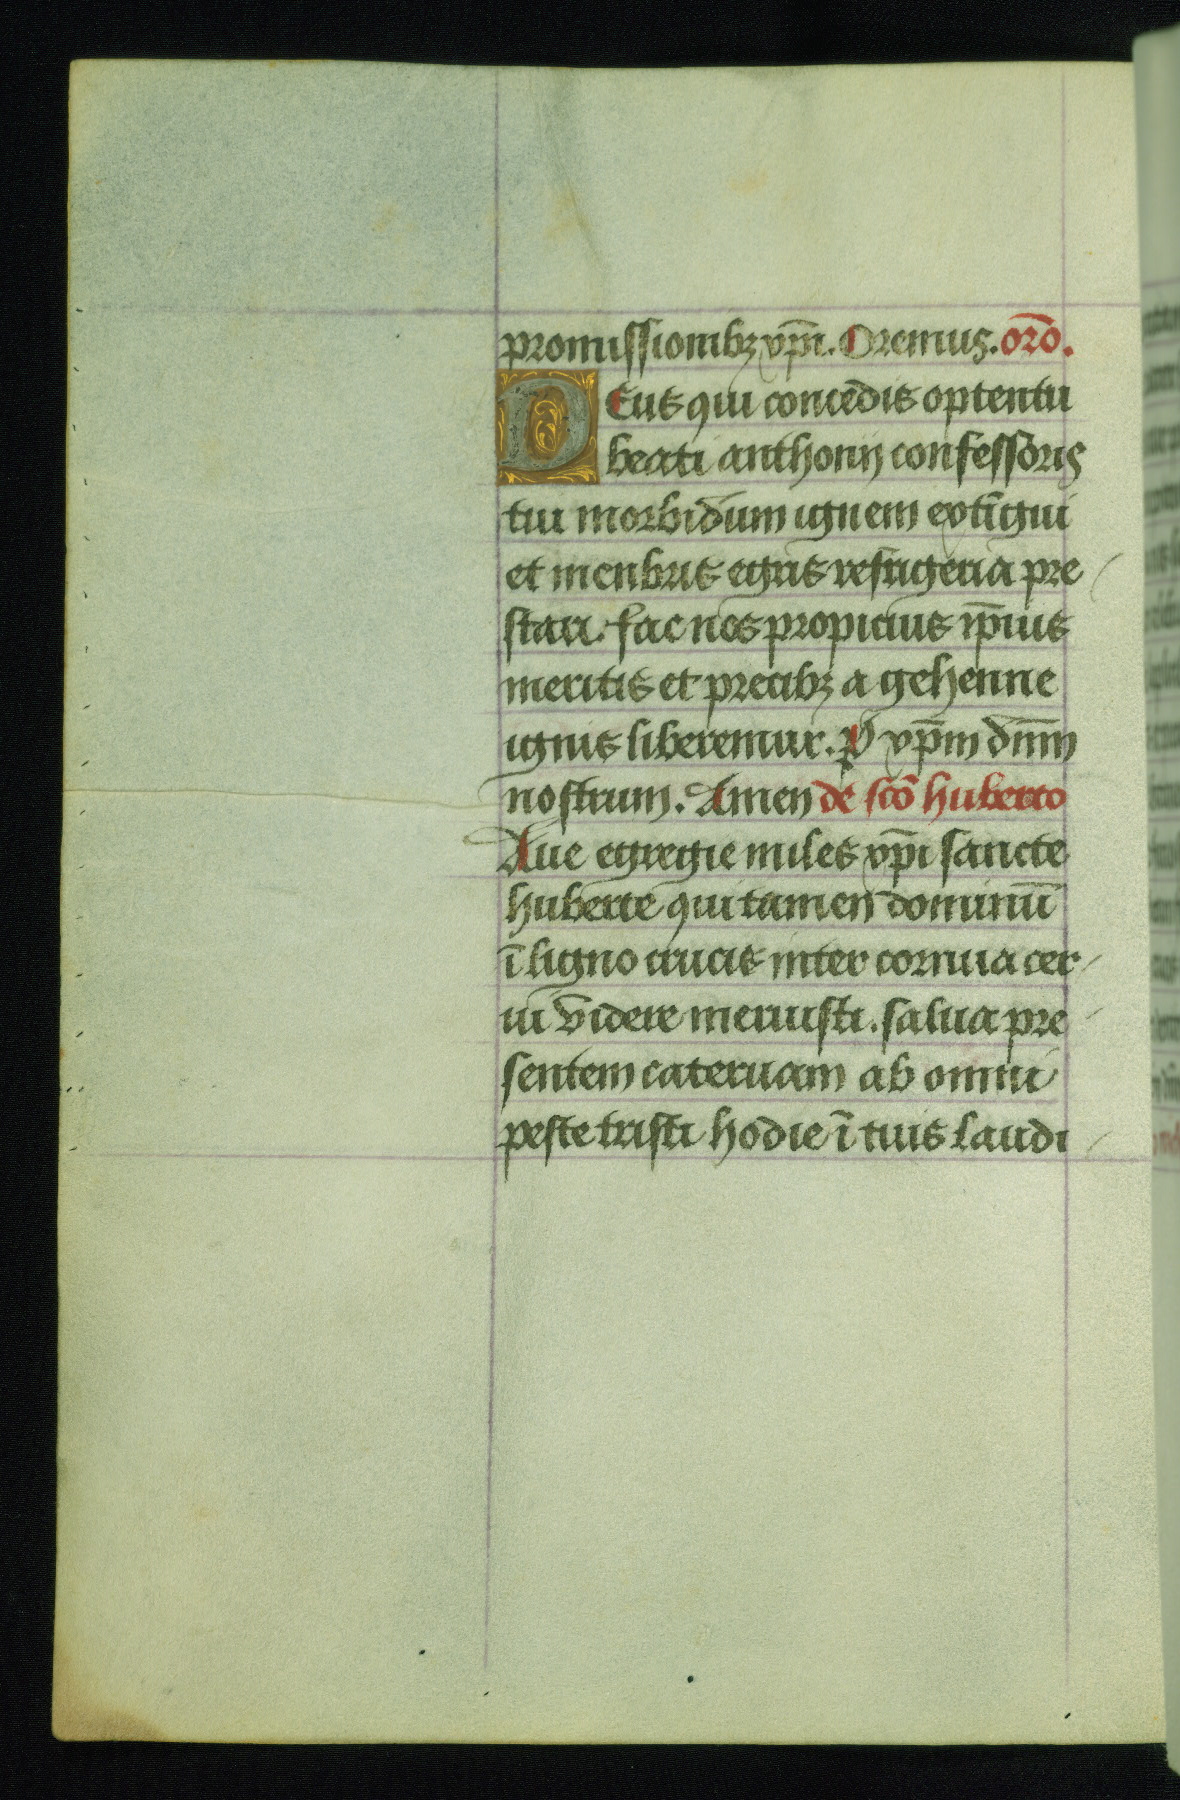 promissionibꝫ xp̄i. Oremus. orō.
Deus qui concēdis optentu
beati anthonij confessoris
tui morbidum ignem extīgui
et menbris egris refrigeria pre
stari. fac nos propicius ip̄ius
meritis et precibꝫ a gehenne
ignis liberemur. P xp̄m dn̄m
nostrum. Amen de scō huberto
Aue egregie miles xp̄i sancte
huberte qui tamen dominū
ī ligno crucis inter cornua cer
ui videre meruisti. salua pre
sentem cateruam ab omni
peste tristi hodie ī tuis laudi